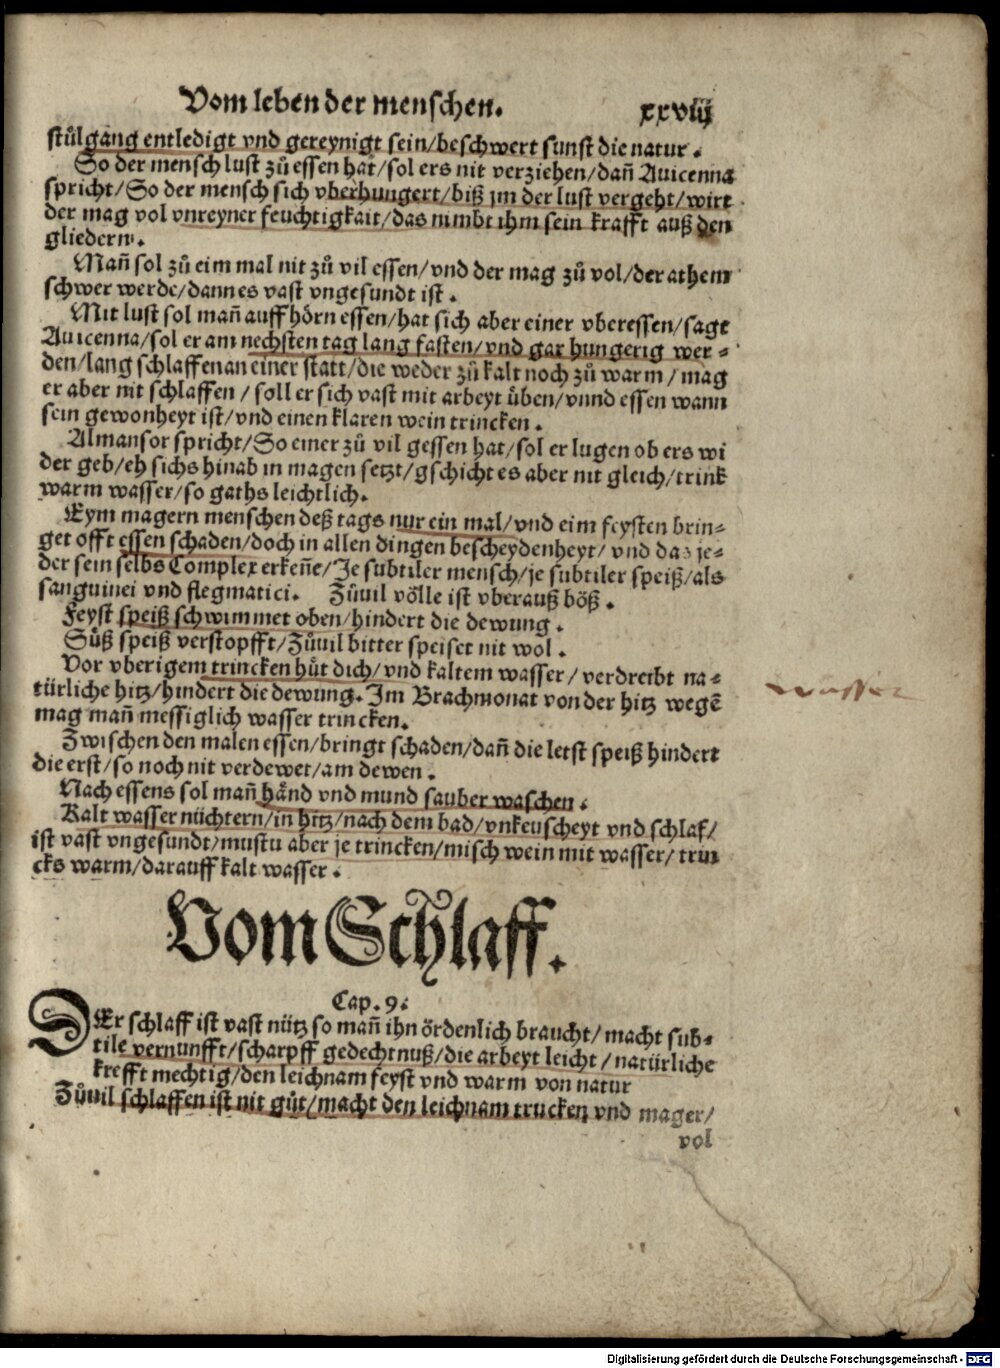 Vom leben der menschen. xxviij
stůlgang entledigt vnd gereynigt sein/beschwert sunst die natur.
So der mensch lust zů essen hat/sol ers nit verziehen/dañ Auicenna
spricht/So der mensch sich vberhungert/biß jm der lust vergeht/wirt
der mag vol vnreyner feuchtigkait/das nimbt ihm sein krafft auß den
gliedern.
Mañ sol zů eim mal nit zů vil essen/vnd der mag zů vol/der athem
schwer werde/dann es vast vngesundt ist.
Mit lust sol mañ auffhörn essen/hat sich aber einer vberessen/sagt
Auicenna/sol er am nechsten tag lang fasten/vnd gar hungerig wer-
den/lang schlaffen an einer statt/die weder zů kalt noch zů warm/mag
er aber nit schlaffen/soll er sich vast mit arbeyt üben/vnnd essen wann
sein gewonheyt ist/vnd einen klaren wein trincken.
Almansor spricht/So einer zů vil gessen hat/sol er lugen ob ers wi
der geb/eh sichs hinab in magen setzt/gschicht es aber nit gleich/trink
warm wasser/so gaths leichtlich.
Eym magern menschen deß tags nur ein mal/vnd eim feysten brin-
get offt essen schaden/doch in allen dingen bescheydenheyt/vnd das je-
der sein selbs Complex erkeñe/Je subtiler mensch/je subtiler speiß/als
sanguinei vnd flegmatici. Zůuil völle ist vberauß böß.
Feyst speiß schwimmet oben/hindert die dewung.
Süß speiß verstopfft/Zůuil bitter speiset nit wol.
Vor vberigem trincken hüt dich/vnd kaltem wasser/verdreibt na-
türliche hitz/hindert die dewung. Im Brachmonat von der hitz wegẽ
mag mañ messiglich wasser trincken.
wasser
Zwischen den malen essen/bringt schaden/dañ die letst speiß hindert
die erst/so noch nit verdewet/am dewen.
Nach essens sol mañ händ vnd mund sauber waschen.
Kalt wasser nüchtern/in hitz/nach dem bad/vnkeuscheyt vnd schlaf/
ist vast vngesundt/mustu aber je trincken/misch wein mit wasser/trin
cks warm/darauff kalt wasser.
Vom Schlaff.
Cap. 9.
DEr schlaff ist vast nütz so mañ ihn ördenlich braucht/macht sub-
tile vernunfft/scharpff gedechtnuß/die arbeyt leicht/natürliche
krefft mechtig/den leichnam feyst vnd warm von natur
Zůuil schlaffen ist nit gůt/macht den leichnam trucken vnd mager/
vol
Digitalisierung gefördert durch die Deutsche Forschungsgemeinschaft - DFG